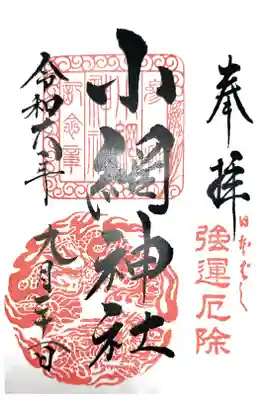 奉拝
日本ばし
強運厄除
小網神社
参拝
小網神社
記念章
令和六年
九月三十日